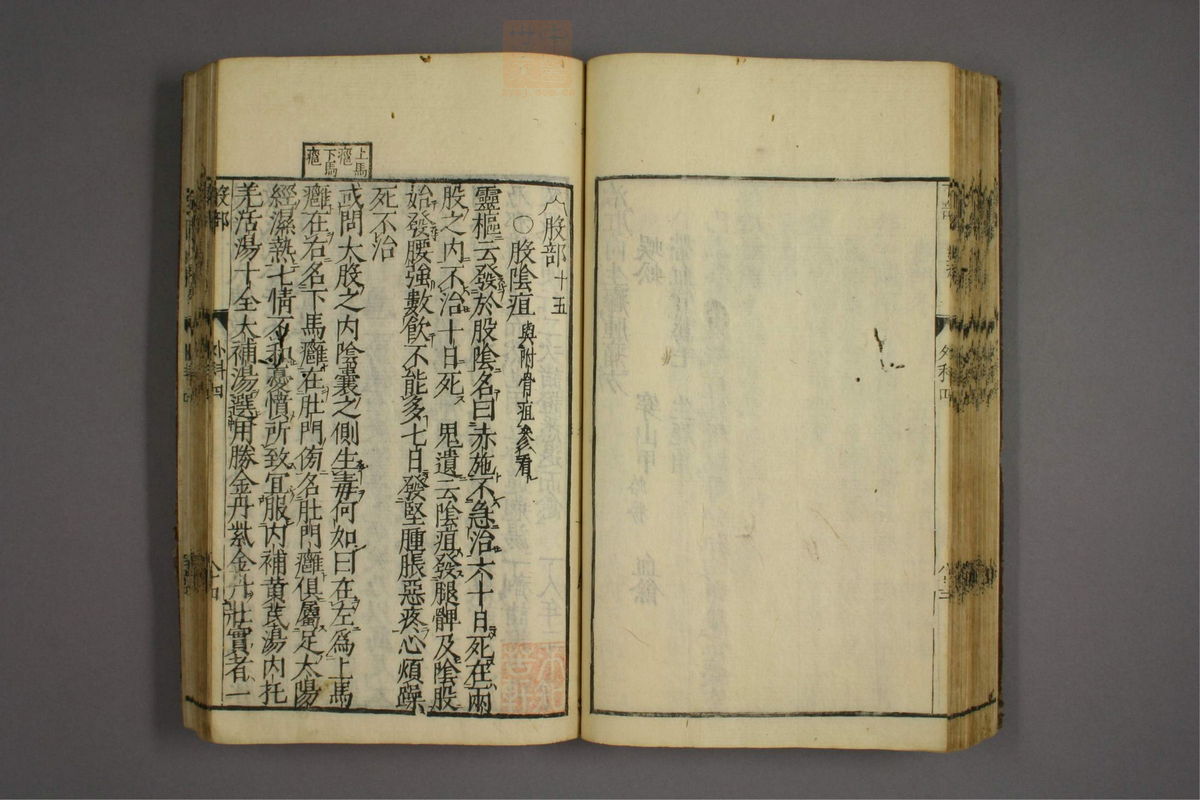 八股部十五
〇股陰疽與附骨疽參看
靈樞云發於股陰名曰赤施不急治六十日死在兩
股之內不治十日死 鬼遺云陰疽發腿髀及陰股
始發腰強數飲不能多七日發堅腫脹惡疼心煩躁
死不治
上馬
癰
下馬
癰
或問大股之內陰囊之側生毒何如曰在左爲上馬
癰在右名下馬癰在肚門傍名肚門癰俱屬足太陽
經濕熱七情不和憂憤所致宜服內補黃芪湯內托
羌活湯十全大補湯選用勝金丹紫金丹壯實者一
股部
外科四
外科四